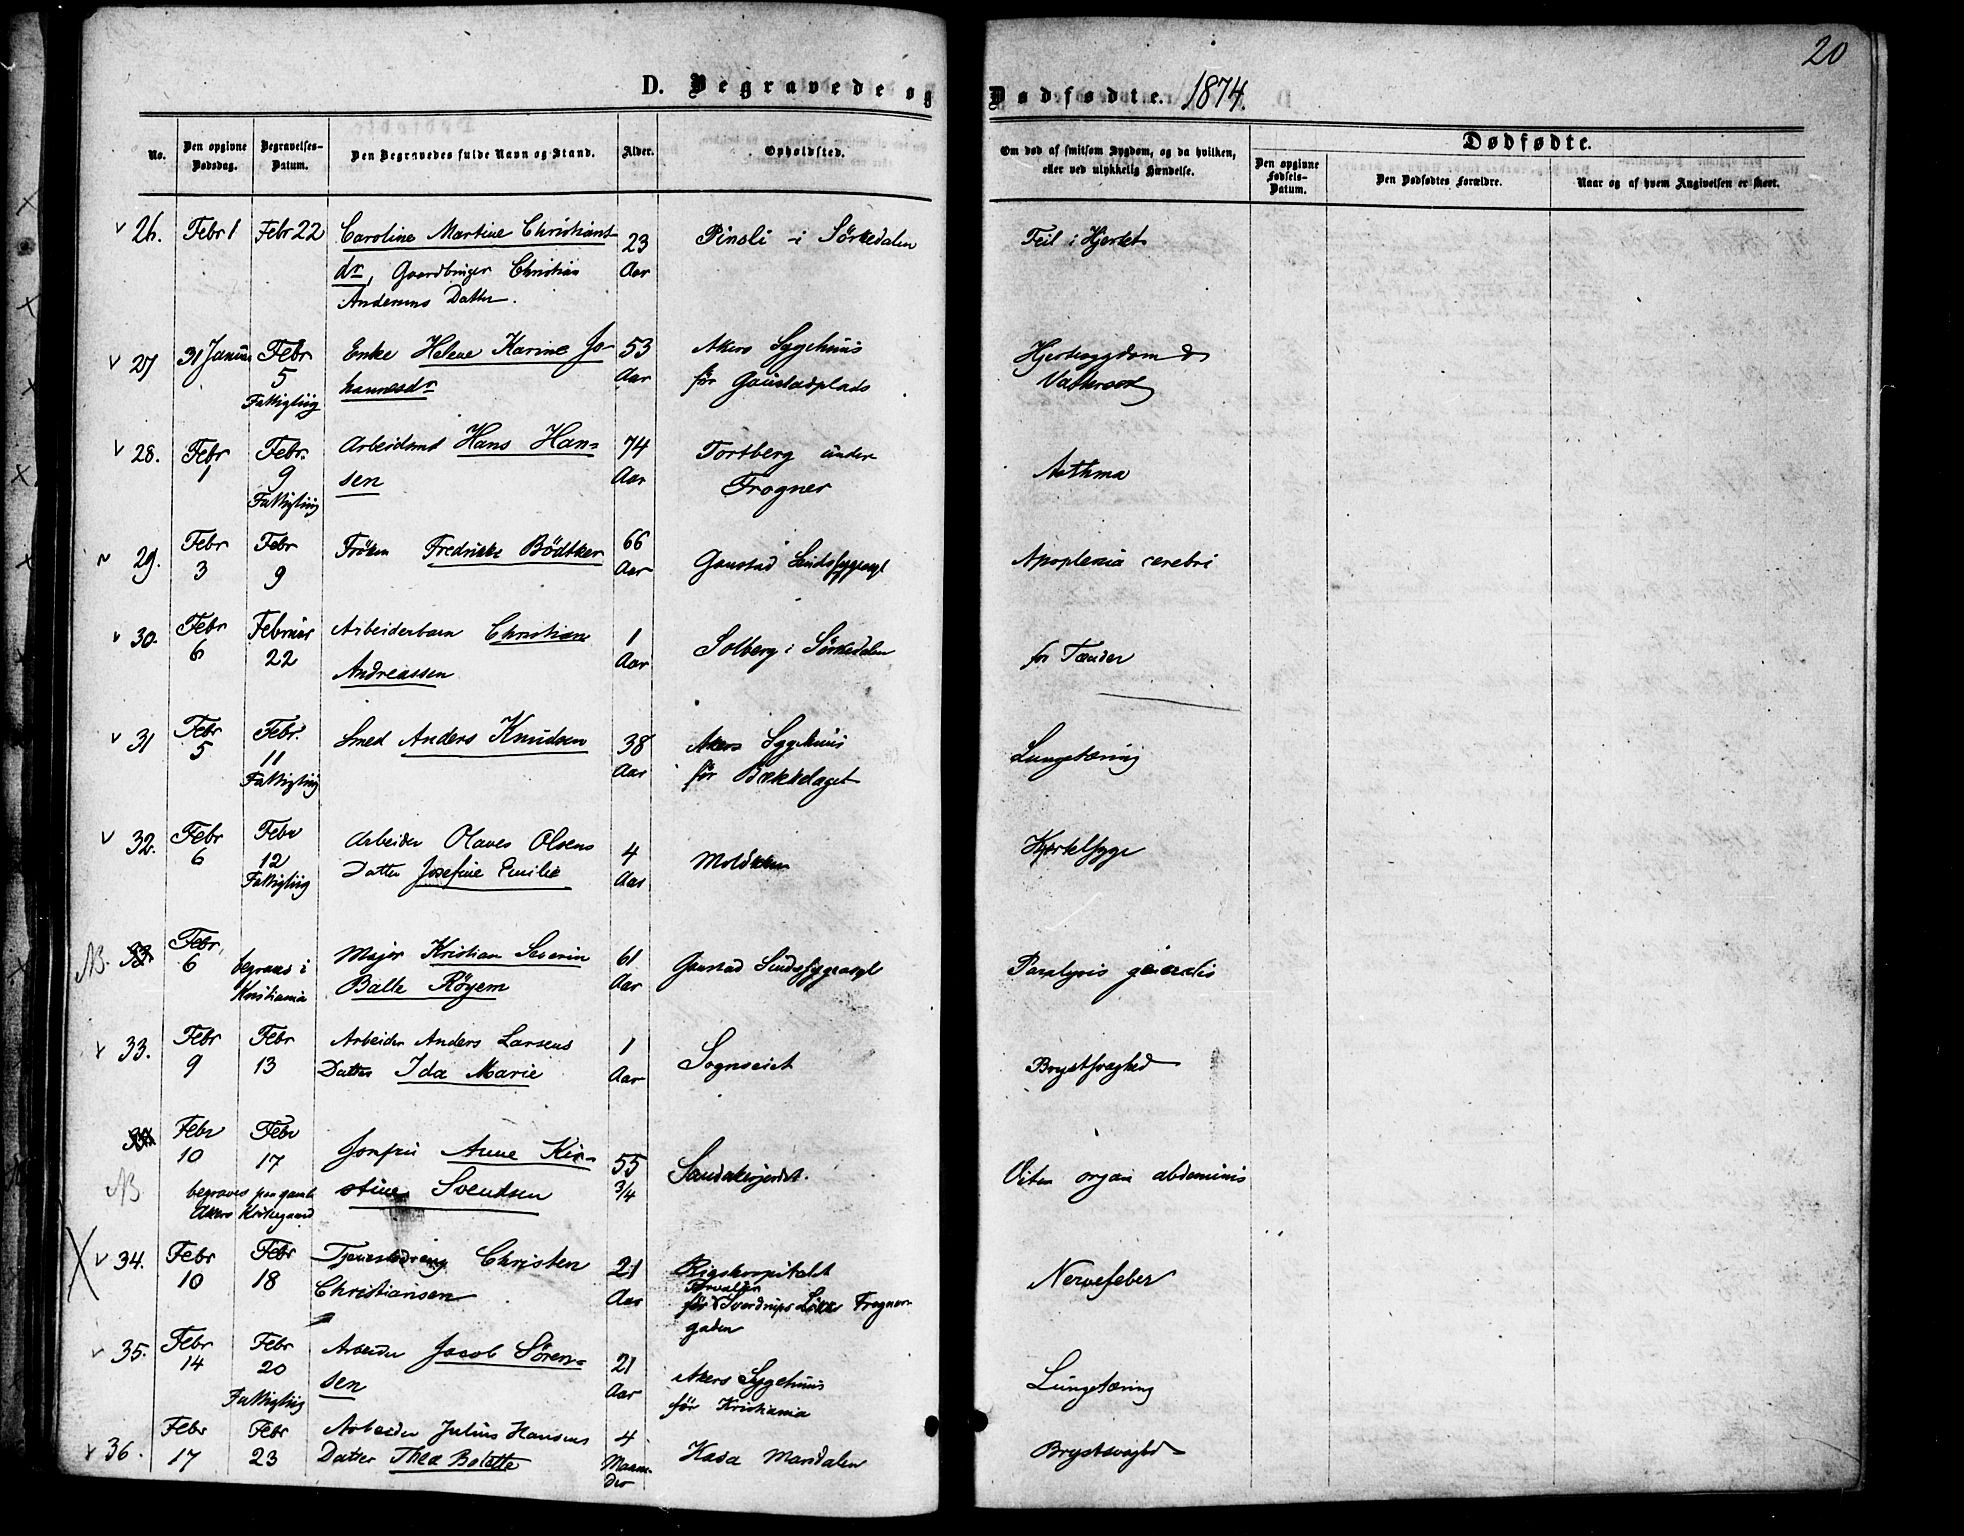 20
D. Begravede og Dødfødte. 1874.
No.
Den opgivne Dødsdag.
Begravelses-Datum.
Den Begravedes fulde Navn og Stand.
Alder.
Opholdsted.
Om død af smitsom Sygdom, og da hvilken, eller ved ulykkelig Hændelse.
Dødfødte.
Den opgivne Fødsels-Datum.
Den Dødfødtes Forældre.
Naar og af hvem Angivelsen er skeet.
26. Febr 1 Febr 22 Caroline Martine Christians- 23 Pinsli i Sörkedalen Feil i Hjertet
dr, Gaardbruger Christian Aar
Andersens Datter.
27 31 Januar Febr Enke Helene Karine Jo- 53 Akers Sygehuus Hjertesygdom &
5 hannesdr Aar för Gaustadplads Vattersot
Fattiglig
28. Febr Febr. Arbeidsmd Hans Han- 74 Tortberg under Asthma
1 9 sen Aar Frogner
Fattiglig
29. Febr Febr Fröken Fredrikke Bödtker 66 Gaustad Sindssygeasyl Apoplexia cerebri
3 9 Aar
30. Febr Februar Arbeiderbarn Christian 1 Solberg i Sörkedalen for Tænder
6 22 Andreassen Aar
31 Febr Febr. Smed Anders Knudsen 38 Akers Sygehuus Lungetæring
5 11 Aar för Bækkelaget
Fattiglig
32. Febr Febr Arbeider Olaves Olsens 4 Moldkken Kjertelsyge
6 12 Datter Josefine Emilie Aar
Fattiglig
NB. 33. Febr. begraves i Major Kristian Severin 61 Gaustad Sindssygeasyl Paralysis generalis
6 Kristiania Balle Röyem Aar
33. Febr Febr Arbeider Anders Larsens 1 Sognseiet Brystsvaghed
9 13 Datter Ida Marie Aar
Febr Febr Jomfru Anne Kir- 55 Sandakerjordet. Vitm organ abdominis
10 17 stine Svendsen 3/4
NB begraves paa gamle
Akers Kirkegaard
34. Febr Febr Tjenestedreng Christen 21 Rigshospitalet Nervefeber
10 18 Christiansen Aar Forvalter
för Sverdrups Lökke Frogner-
gaden
35. Febr Febr Arbeider Jacob Sören- 21 Akers Sygehuus Lungetæring
14 20 sen Aar för Kristiania
Fattiglig
36. Febr Febr Arbeider Julius Hansens 4 Kasa Maridalen Brystsvaghed
17 23 Datter Thea Bolette Maane-
der